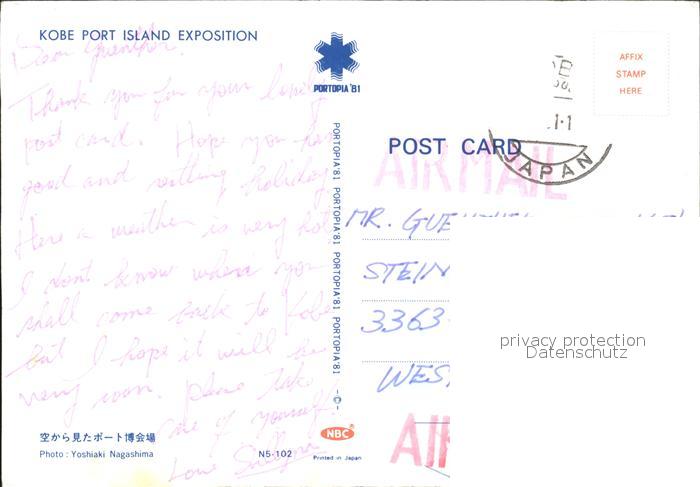 KOBE PORT ISLAND EXPOSITION
PORTOPIA '81
AFFIX
STAMP
HERE
POST CARD
JAPAN
AIR MAIL
Dear Guenther.
Thank you for your lovely
post card. Hope you have
good and holiday
Here a weather is very hot
I dont know when you
shall come back to Kobe
but I hope it will be
very soon. Please take
care of yourself.
Love
PORTOPIA'81 PORTOPIA'81 PORTOPIA'81 PORTOPIA'81
MR. GUE
STEIN
3363
WES
privacy protection
Datenschutz
AI
空から見たポート博会場
Photo : Yoshiaki Nagashima
N5-102
NBC
Printed in Japan